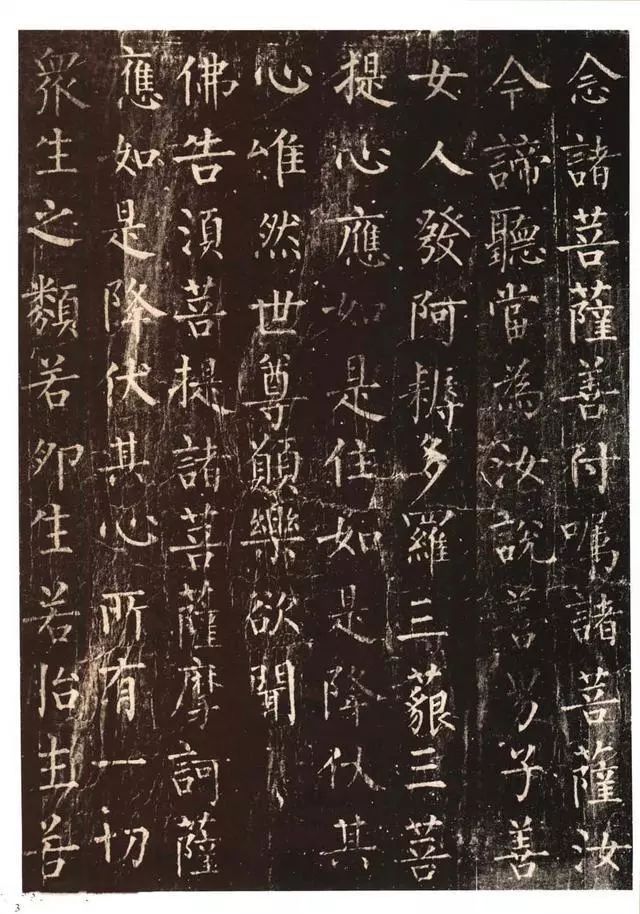 念諸菩薩善付嘱諸菩薩汝
今諦聽當為汝說善男子善
女人發阿耨多羅三藐三菩
提心應如是住如是降伏其
心唯然世尊願樂欲聞
佛告須菩提諸菩薩摩訶薩
應如是降伏其心所有一切
衆生之類若卵生若胎生若
3